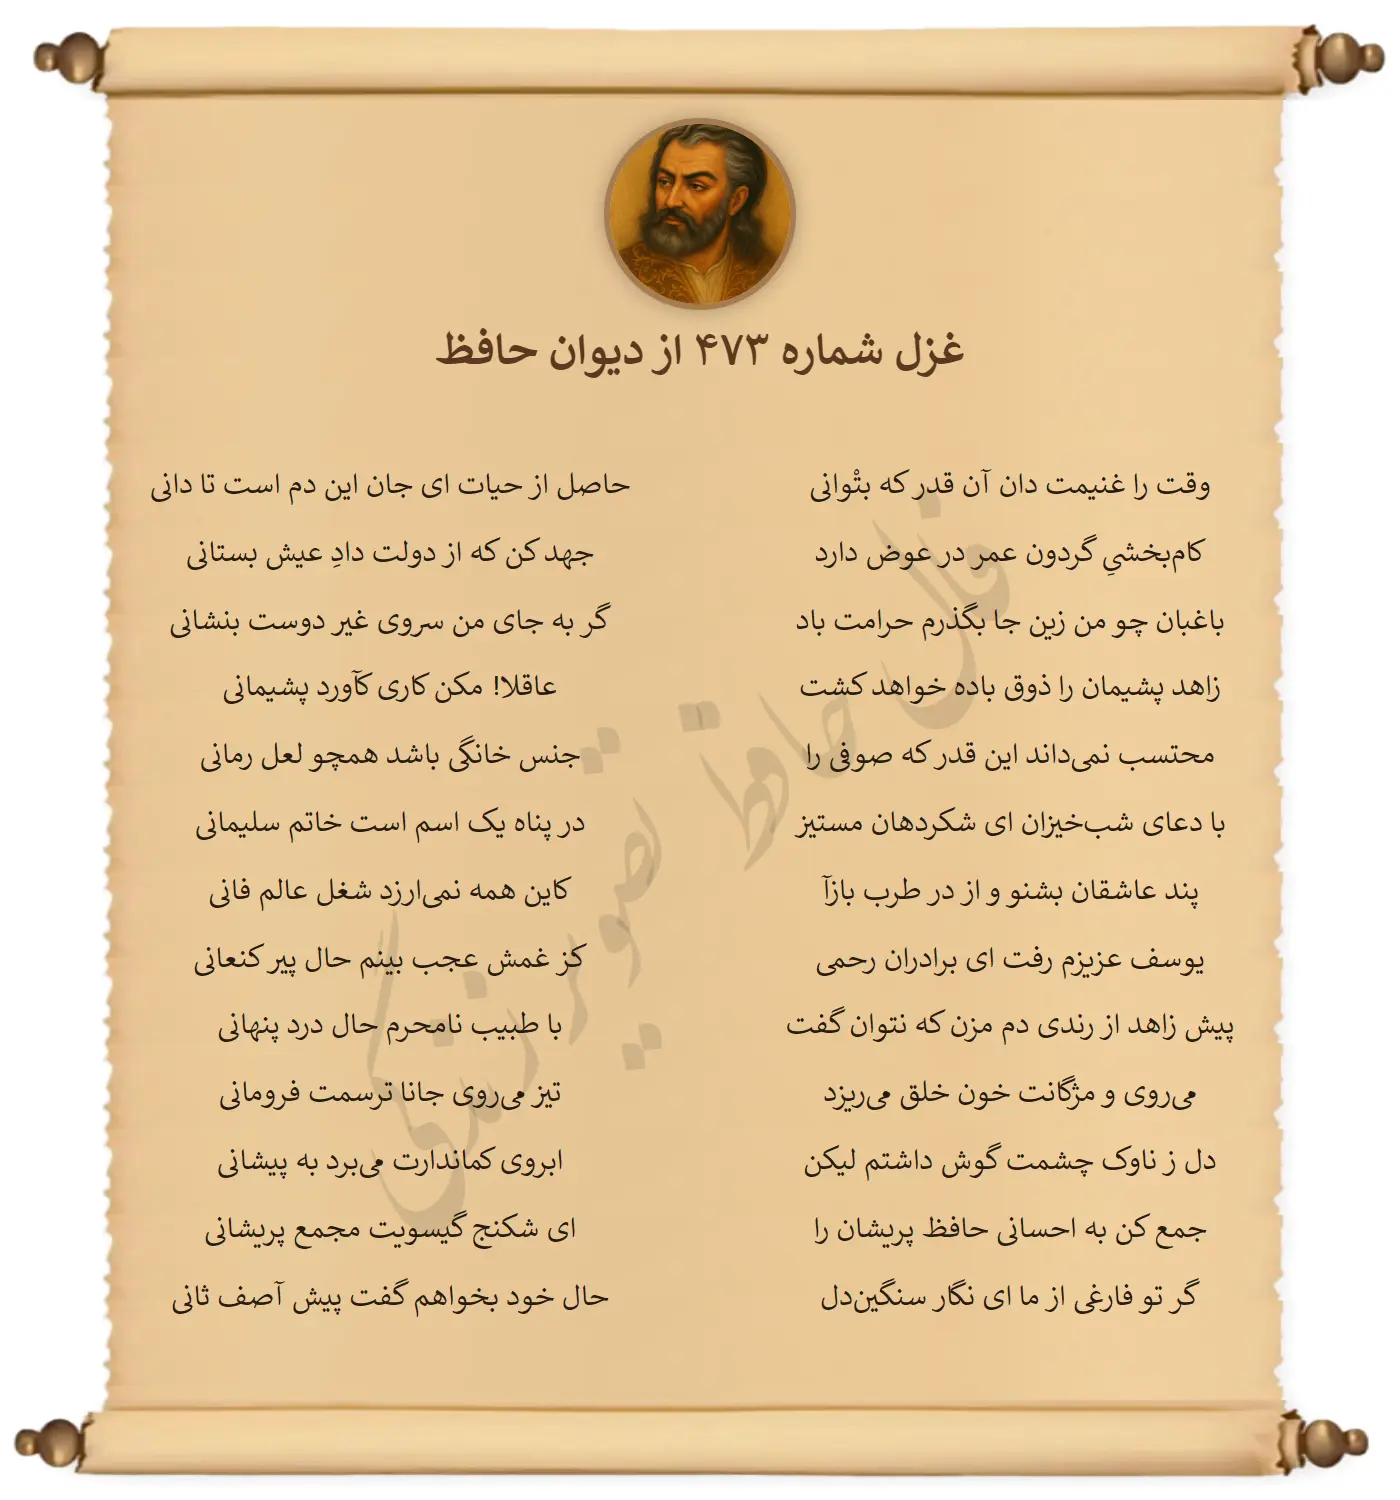 غزل شماره ۴۷۳ از دیوان حافظ
وقت را غنیمت دان آن قدر که بتْوانی حاصل از حیات ای جان این دم است تا دانی
کام‌بخشیِ گردون عمر در عوض دارد جهد کن که از دولت دادِ عیش بستانی
باغبان چو من زین جا بگذرم حرامت باد گر به جای من سروی غیر دوست بنشانی
زاهد پشیمان را ذوق باده خواهد کشت عاقلا! مکن کاری کآورد پشیمانی
محتسب نمی‌داند این قدر که صوفی را جنس خانگی باشد همچو لعل رمانی
با دعای شب‌خیزان ای شکردهان مستیز در پناه یک اسم است خاتم سلیمانی
پند عاشقان بشنو و از در طرب بازآ کاین همه نمی‌ارزد شغل عالم فانی
یوسف عزیزم رفت ای برادران رحمی کز غمش عجب بینم حال پیر کنعانی
پیش زاهد از رندی دم مزن که نتوان گفت با طبیب نامحرم حال درد پنهانی
می‌روی و مژگانت خون خلق می‌ریزد تیز می‌روی جانا ترسمت فرومانی
دل ز ناوک چشمت گوش داشتم لیکن ابروی کماندارت می‌برد به پیشانی
جمع کن به احسانی حافظ پریشان را ای شکنج گیسویت مجمع پریشانی
گر تو فارغی از ما ای نگار سنگین‌دل حال خود بخواهم گفت پیش آصف ثانی
فال حافظ تصویر زندگی